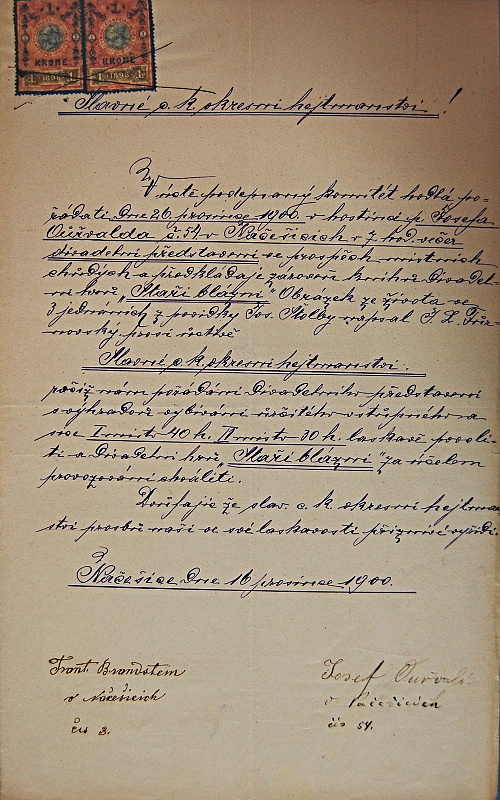 1 1
KRONE KRONE
1 1898 1 1 1898 1
Slavné c. k. okresní hejtmanství!
V úctě podepsaný komitét hodlá po-
řádati dne 26. prosince 1900. v hostinci p. Josefa
č. 54. v Náčešicích v 7. hod. večer
divadelní představení ve prospěch místních
chudých a předkládaje zároveň knihu divadel-
ní hru „Staří blázni" Obrázek ze života ve
3 jednáních z povídky Jos. Štolby napsal J. L. Tur-
novský prosí uctivě
Slavné c. k. okresní hejtmanství.
račiž nám pořádání divadelního představení
s výhradou vybírání určitého vstupného a
sice I místo 40 h. II místo 30 h. laskavě povoli-
ti a divadelní hru „Staří blázni" za účelem
provozování schváliti.
Doufajíc že slav. c. k. okresní hejtman-
ství prosbu naši ve své laskavosti příznivě vyřídí.
Náčešice dne 16 prosince 1900.
Frant Brandstem
v Načešicích
čís 3.
Josef
v Načešicích
čís 54.